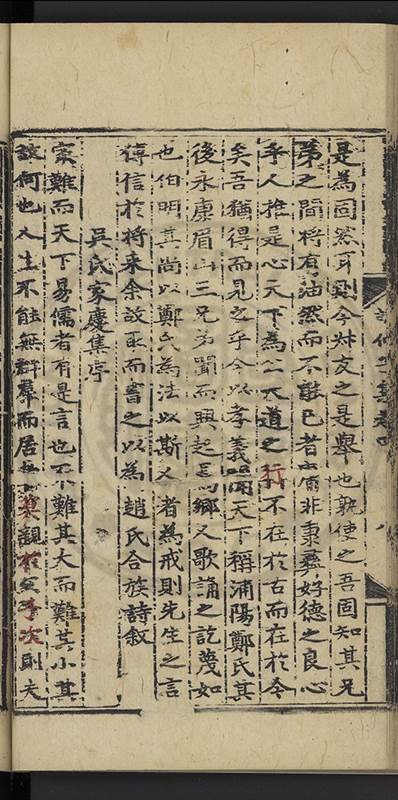 是為固然耳則今叔友之是舉也孰使之吾固知其兄
弟之間將有油然而不能已者實非秉彝好德之良心
乎人推是心天下為公大道之行不在於古而在於今
矣吾猶得而見之乎今以孝義聞天下稱浦陽鄭氏其
後永康眉山三兄弟聞而興起焉鄉人歌誦之訖蔑如
也伯明其尚以鄭氏為法以斯人者為戒則先生之言
傳信於將來余故正而書之以為趙氏合族詩敘
吳氏家慶集序
家難而天下易儒者有是言也不難其大而難其小其
故何也人生不能無群羣而居莫親於父子次則夫